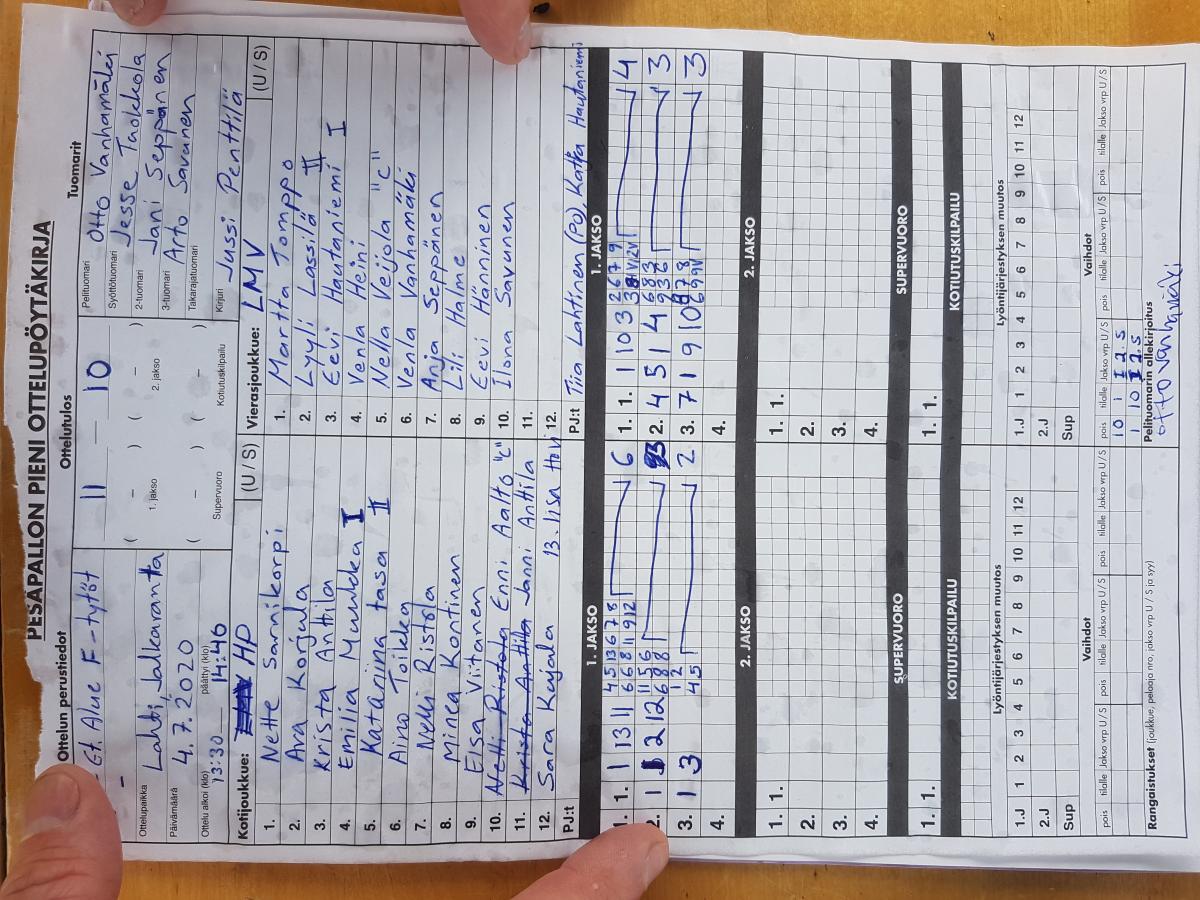 PESÄPALLON PIENI OTTELUPÖYTÄKIRJA
Ottelun perustiedot
Ottelutulos
Tuomarit
- Et. Alue F-tytöt
11 — 10
Pelituomari Otto Vanhamäki
Syöttötuomari Jesse Tuokkola
2-tuomari Jani Seppänen
3-tuomari Arto Savunen
Takarajatuomari
Kirjuri Jussi Penttilä
Ottelupaikka Lahti, Jalkaranta
Päivämäärä 4.7.2020
Ottelu alkoi (klo) 13:30 päättyi (klo) 14:46
( – ) ( – )
1. jakso 2. jakso
( – ) ( – )
Supervuoro Kotiutuskilpailu
Kotijoukkue: HP (U / S)
1. Nette Sarnikorpi
2. Ava Korjula
3. Krista Anttila
4. Emilia Muukka I
5. Katariina tasa II
6. Aino Toilakka
7. Nelli Ristola
8. Minea Kontinen
9. Elsa Viitanen
10. Netti Ristola Enni Aalto "C"
11. Krista Anttila Janni Anttila
12. Sara Kujala 13. Iisa Hovi
PJ:t
Vierasjoukkue: LMV (U / S)
1. Martta Tomppo
2. Lyyli Lassila II
3. Eevi Hautaniemi I
4. Venla Heini
5. Nella Veijola "C"
6. Venla Vanhamäki
7. Anja Seppänen
8. Lili Halme
9. Eevi Hänninen
10. Ilona Savunen
11.
12.
PJ:t Tiia Lahtinen (PO), Katja Hautaniemi
1. JAKSO
1. 1. 1 13 11 4 5 13 6 7 8 6
6 6 8 11 9 12
2. 1 2 12
3. 1 3 4 5 2
4.
1. JAKSO
1. 1. 1 10 3 2 6 7 9 4
2. 4 5 1 4 3
3. 7 1 9 10 3
4.
2. JAKSO
1. 1.
2.
3.
4.
2. JAKSO
1. 1.
2.
3.
4.
SUPERVUORO
1. 1.
SUPERVUORO
1. 1.
KOTIUTUSKILPAILU
KOTIUTUSKILPAILU
Lyöntijärjestyksen muutos
1.J 1 2 3 4 5 6 7 8 9 10 11 12
2.J
Sup
Lyöntijärjestyksen muutos
1.J 1 2 3 4 5 6 7 8 9 10 11 12
2.J
Sup
Vaihdot
pois tilalle Jakso vrp U / S pois tilalle Jakso vrp U / S pois tilalle Jakso vrp U / S
Vaihdot
pois tilalle Jakso vrp U / S pois tilalle Jakso vrp U / S pois tilalle Jakso vrp U / S
10 1 I 2. S
1 10 I 2. S
Rangaistukset (joukkue, pelaaja nro, jakso vrp U / S ja syy)
Pelituomarin allekirjoitus
Otto Vanhamäki